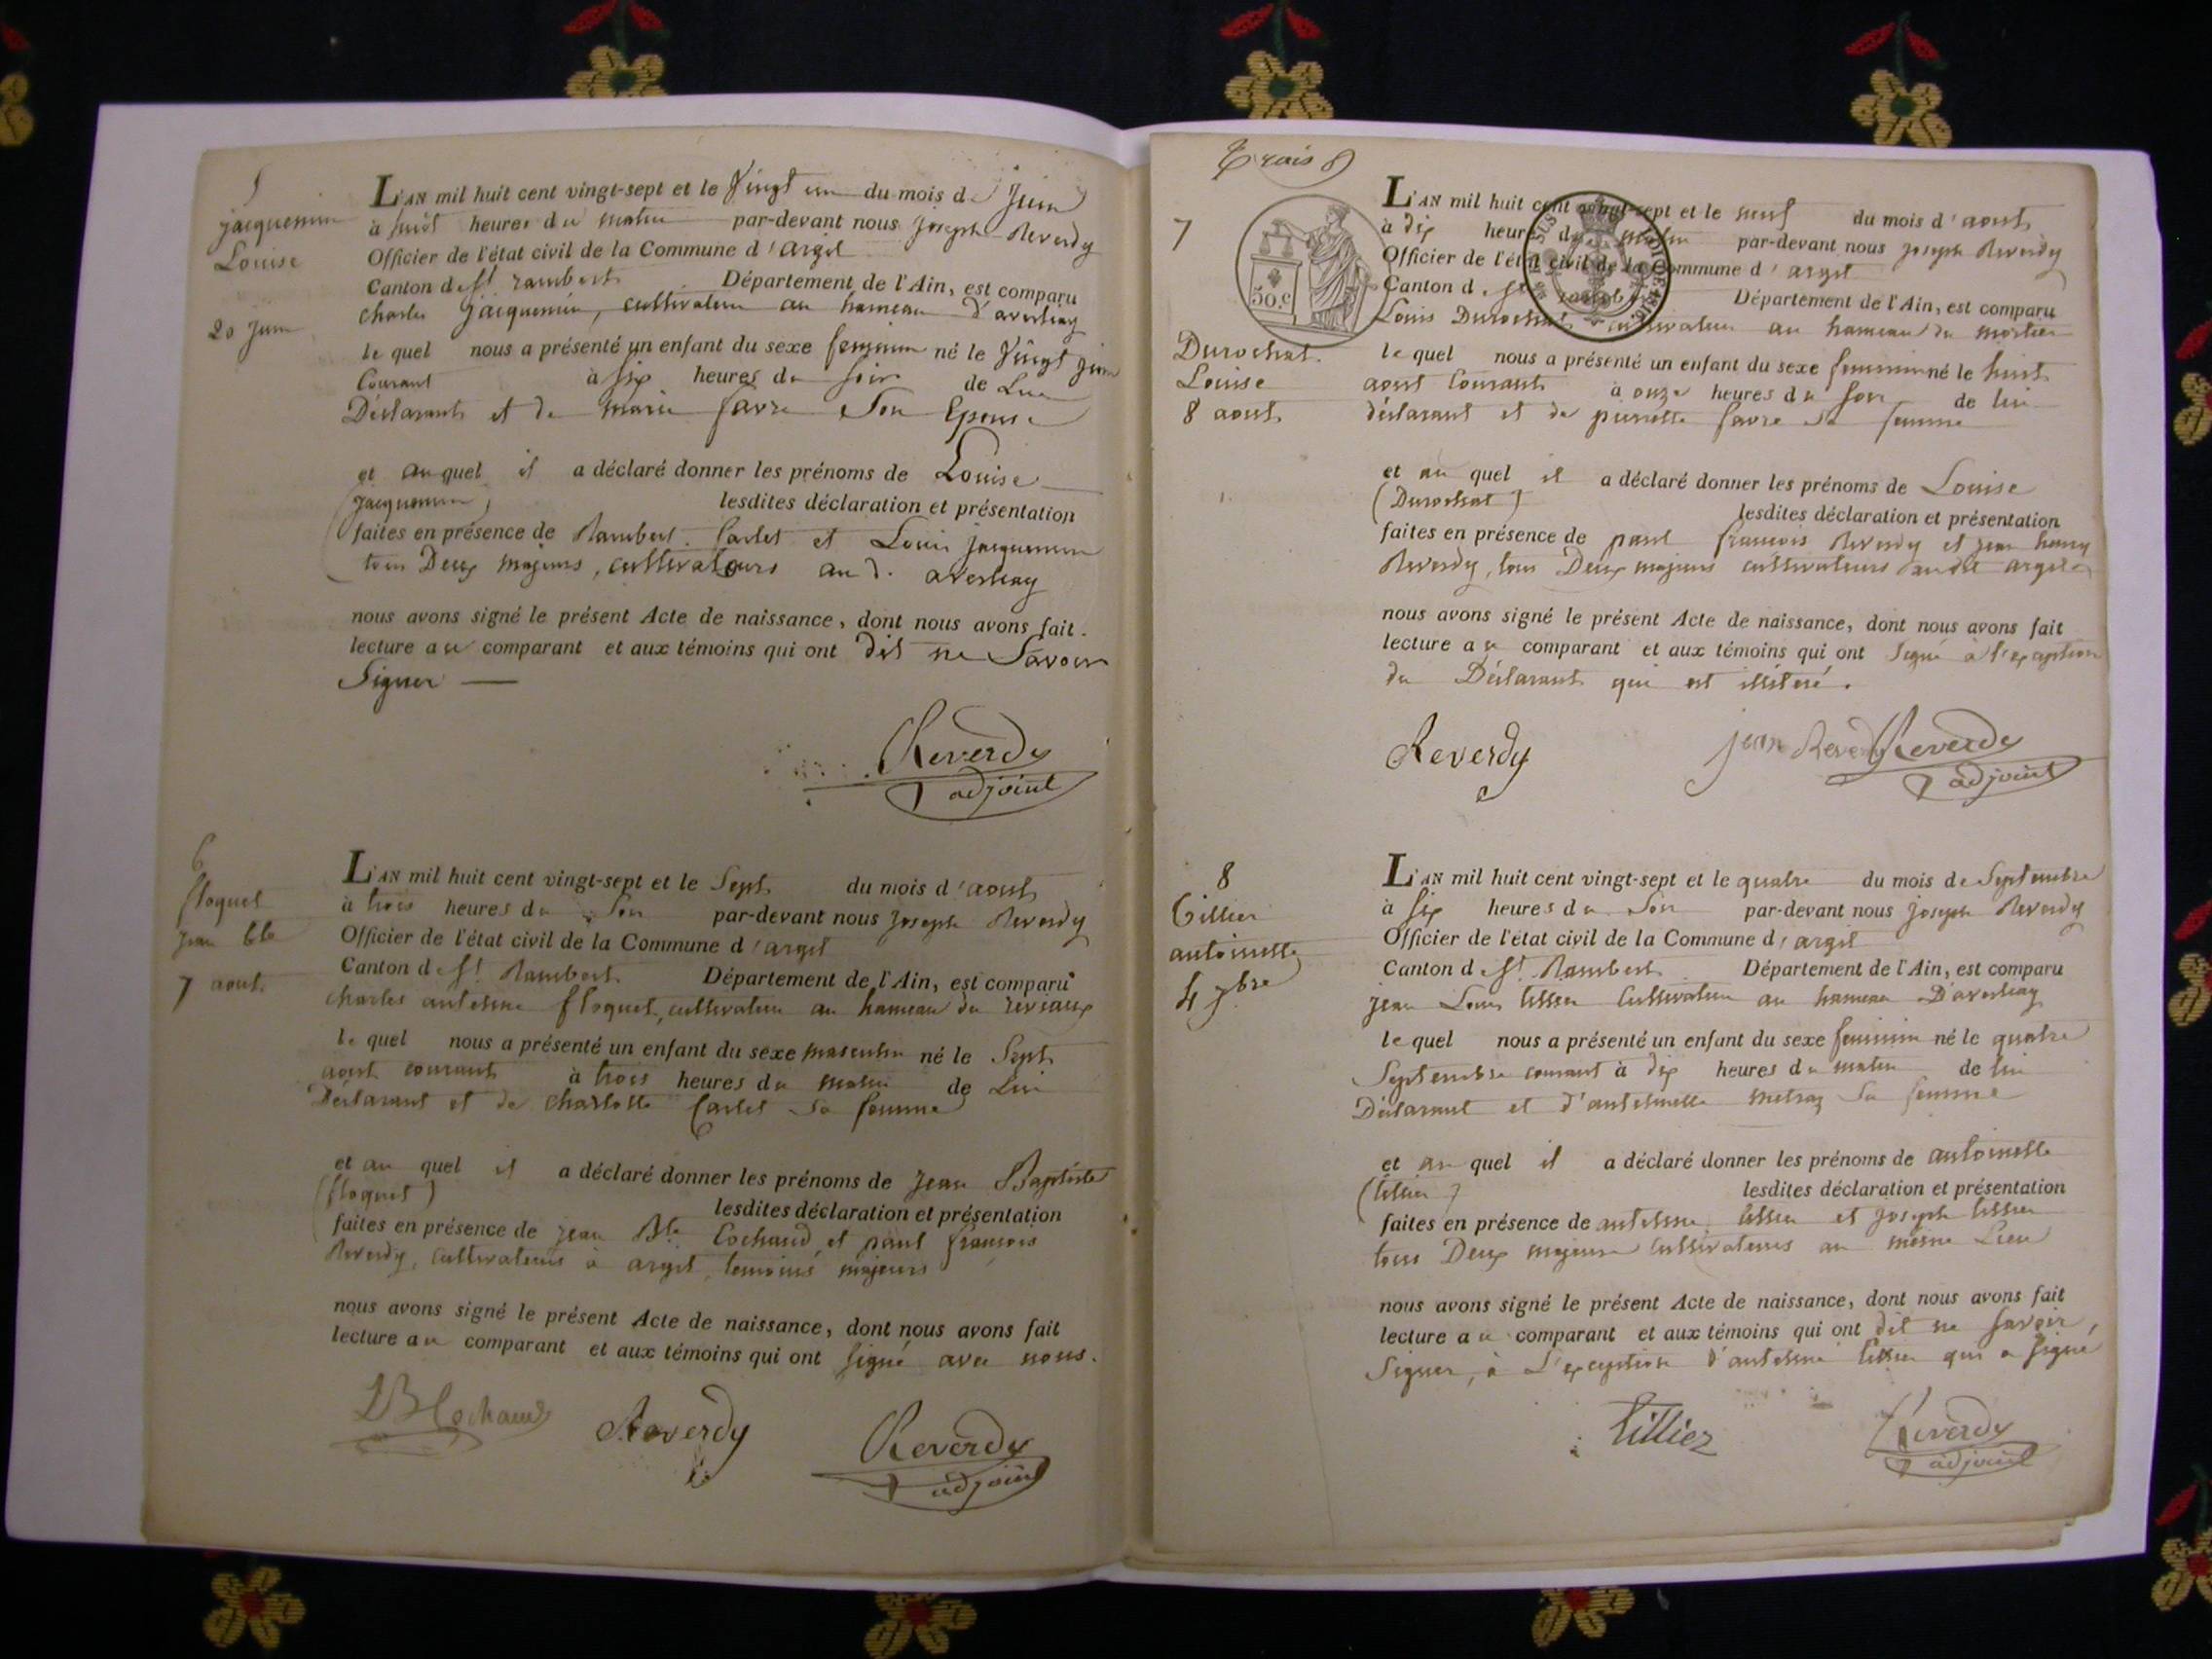 5
jacquemin
Louise
20 Juin
L'AN mil huit cent vingt-sept et le Vingt un du mois de Juin
à huit heures du matin par-devant nous Joseph Reverdy
Officier de l'état civil de la Commune d'argil
Canton de St rambert Département de l'Ain, est comparu
charles jacquemin, cultivateur au hameau d'averliaz
le quel nous a présenté un enfant du sexe feminin né le Vingt juin
Courant à six heures du soir de Lui
Déclarant et de marie favre Son Epouse
et au quel il a déclaré donner les prénoms de Louise
(jacquemin) lesdites déclaration et présentation
faites en présence de Rambert Carlet et Louis jacquemin
tous Deux majeurs, cultivateurs au d. averliaz
nous avons signé le présent Acte de naissance, dont nous avons fait
lecture au comparant et aux témoins qui ont dit ne Savoir
Signer
Reverdy
adjoint
6
floquet
Jean bte
7 aout
L'AN mil huit cent vingt-sept et le Sept du mois d'aout
à trois heures du Soir par-devant nous Joseph Reverdy
Officier de l'état civil de la Commune d'argil
Canton de St Rambert Département de l'Ain, est comparu
charles antelme floquet, cultivateur au hameau de reviaux
le quel nous a présenté un enfant du sexe masculin né le Sept
aout courant à trois heures du matin de Lui
Déclarant et de charlotte Carlet Sa femme
et au quel il a déclaré donner les prénoms de Jean Baptiste
(floquet) lesdites déclaration et présentation
faites en présence de jean Bte Cochaud et paul françois
Reverdy, cultivateurs à argil, temoins majeurs
nous avons signé le présent Acte de naissance, dont nous avons fait
lecture au comparant et aux témoins qui ont signé avec nous.
JB Cochaud Reverdy Reverdy
adjoint
Trois
7
50.c
Durochat
Louise
8 aout
L'AN mil huit cent vingt-sept et le neuf du mois d'aout
à dix heures du matin par-devant nous joseph Reverdy
Officier de l'état civil de la Commune d'argil
Canton de st rambert Département de l'Ain, est comparu
Louis Durochat cultivateur au hameau du mortier
le quel nous a présenté un enfant du sexe feminin né le huit
aout Courant à onze heures du soir de lui
déclarant et de pierrette favre Sa femme
et au quel il a déclaré donner les prénoms de Louise
(Durochat) lesdites déclaration et présentation
faites en présence de paul françois Reverdy et jean henry
Reverdy, tous Deux majeurs cultivateurs audit argil
nous avons signé le présent Acte de naissance, dont nous avons fait
lecture au comparant et aux témoins qui ont signé à l'exception
du Déclarant qui est illitéré.
Reverdy jean Reverdy Reverdy
adjoint
8
Tillier
antoinette
4 7bre
L'AN mil huit cent vingt-sept et le quatre du mois de Septembre
à six heures du Soir par-devant nous joseph Reverdy
Officier de l'état civil de la Commune d'argil
Canton de St Rambert Département de l'Ain, est comparu
jean Louis tillier Cultivateur au hameau D'averliaz
le quel nous a présenté un enfant du sexe feminin né le quatre
Septembre courant à dix heures du matin de lui
Déclarant et d'antelmette metraz Sa femme
et au quel il a déclaré donner les prénoms de antoinette
(tillier) lesdites déclaration et présentation
faites en présence de antelme tillier et joseph tillier
tous Deux majeurs Cultivateurs au même Lieu
nous avons signé le présent Acte de naissance, dont nous avons fait
lecture au comparant et aux témoins qui ont dit ne savoir
Signer, à L'exception d'antelme tillier qui a signé
Tillier Reverdy
adjoint